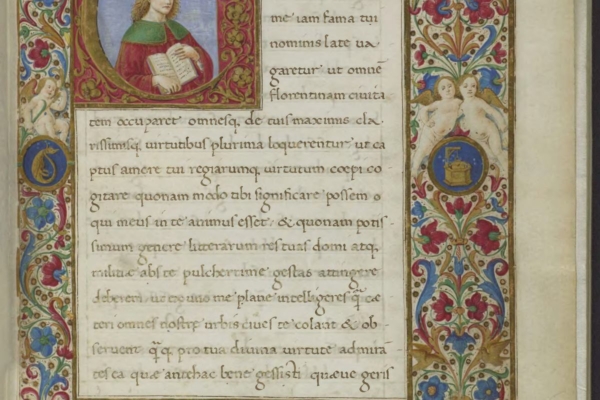 me iam fama tui
nominis late va
garetur ut omnẽ
florentinam civita
tem occuparet omnesq; de tuis maximis cla
rissimisq; virtutibus plurima loquerentur ut ca
ptus amore tui regiarumq; virtutum coepi co
gitare quonam modo tibi significare possem o
qui meus in te animus esset & quonam potis
simum genere litterarum res tuas domi atq;
militiae abs te pulcherrime gestas attingere
deberem ut ex uno me plane intelligeres q̃ cae
teri omnes nostrae urbis cives te colant & ob
servent q̃q̃ pro tua divina virtute admirã
tes ea quae antehac bene gessisti quaeve geris